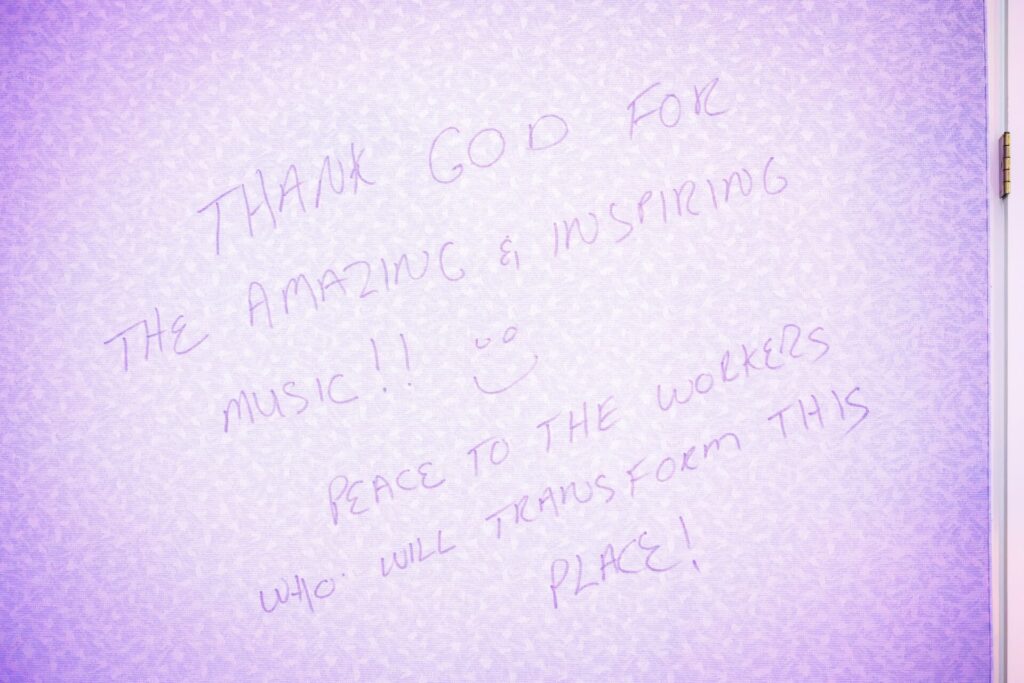 THANK GOD FOR
THE AMAZING & INSPIRING
MUSIC!!
PEACE TO THE WORKERS
WHO WILL TRANSFORM THIS
PLACE!